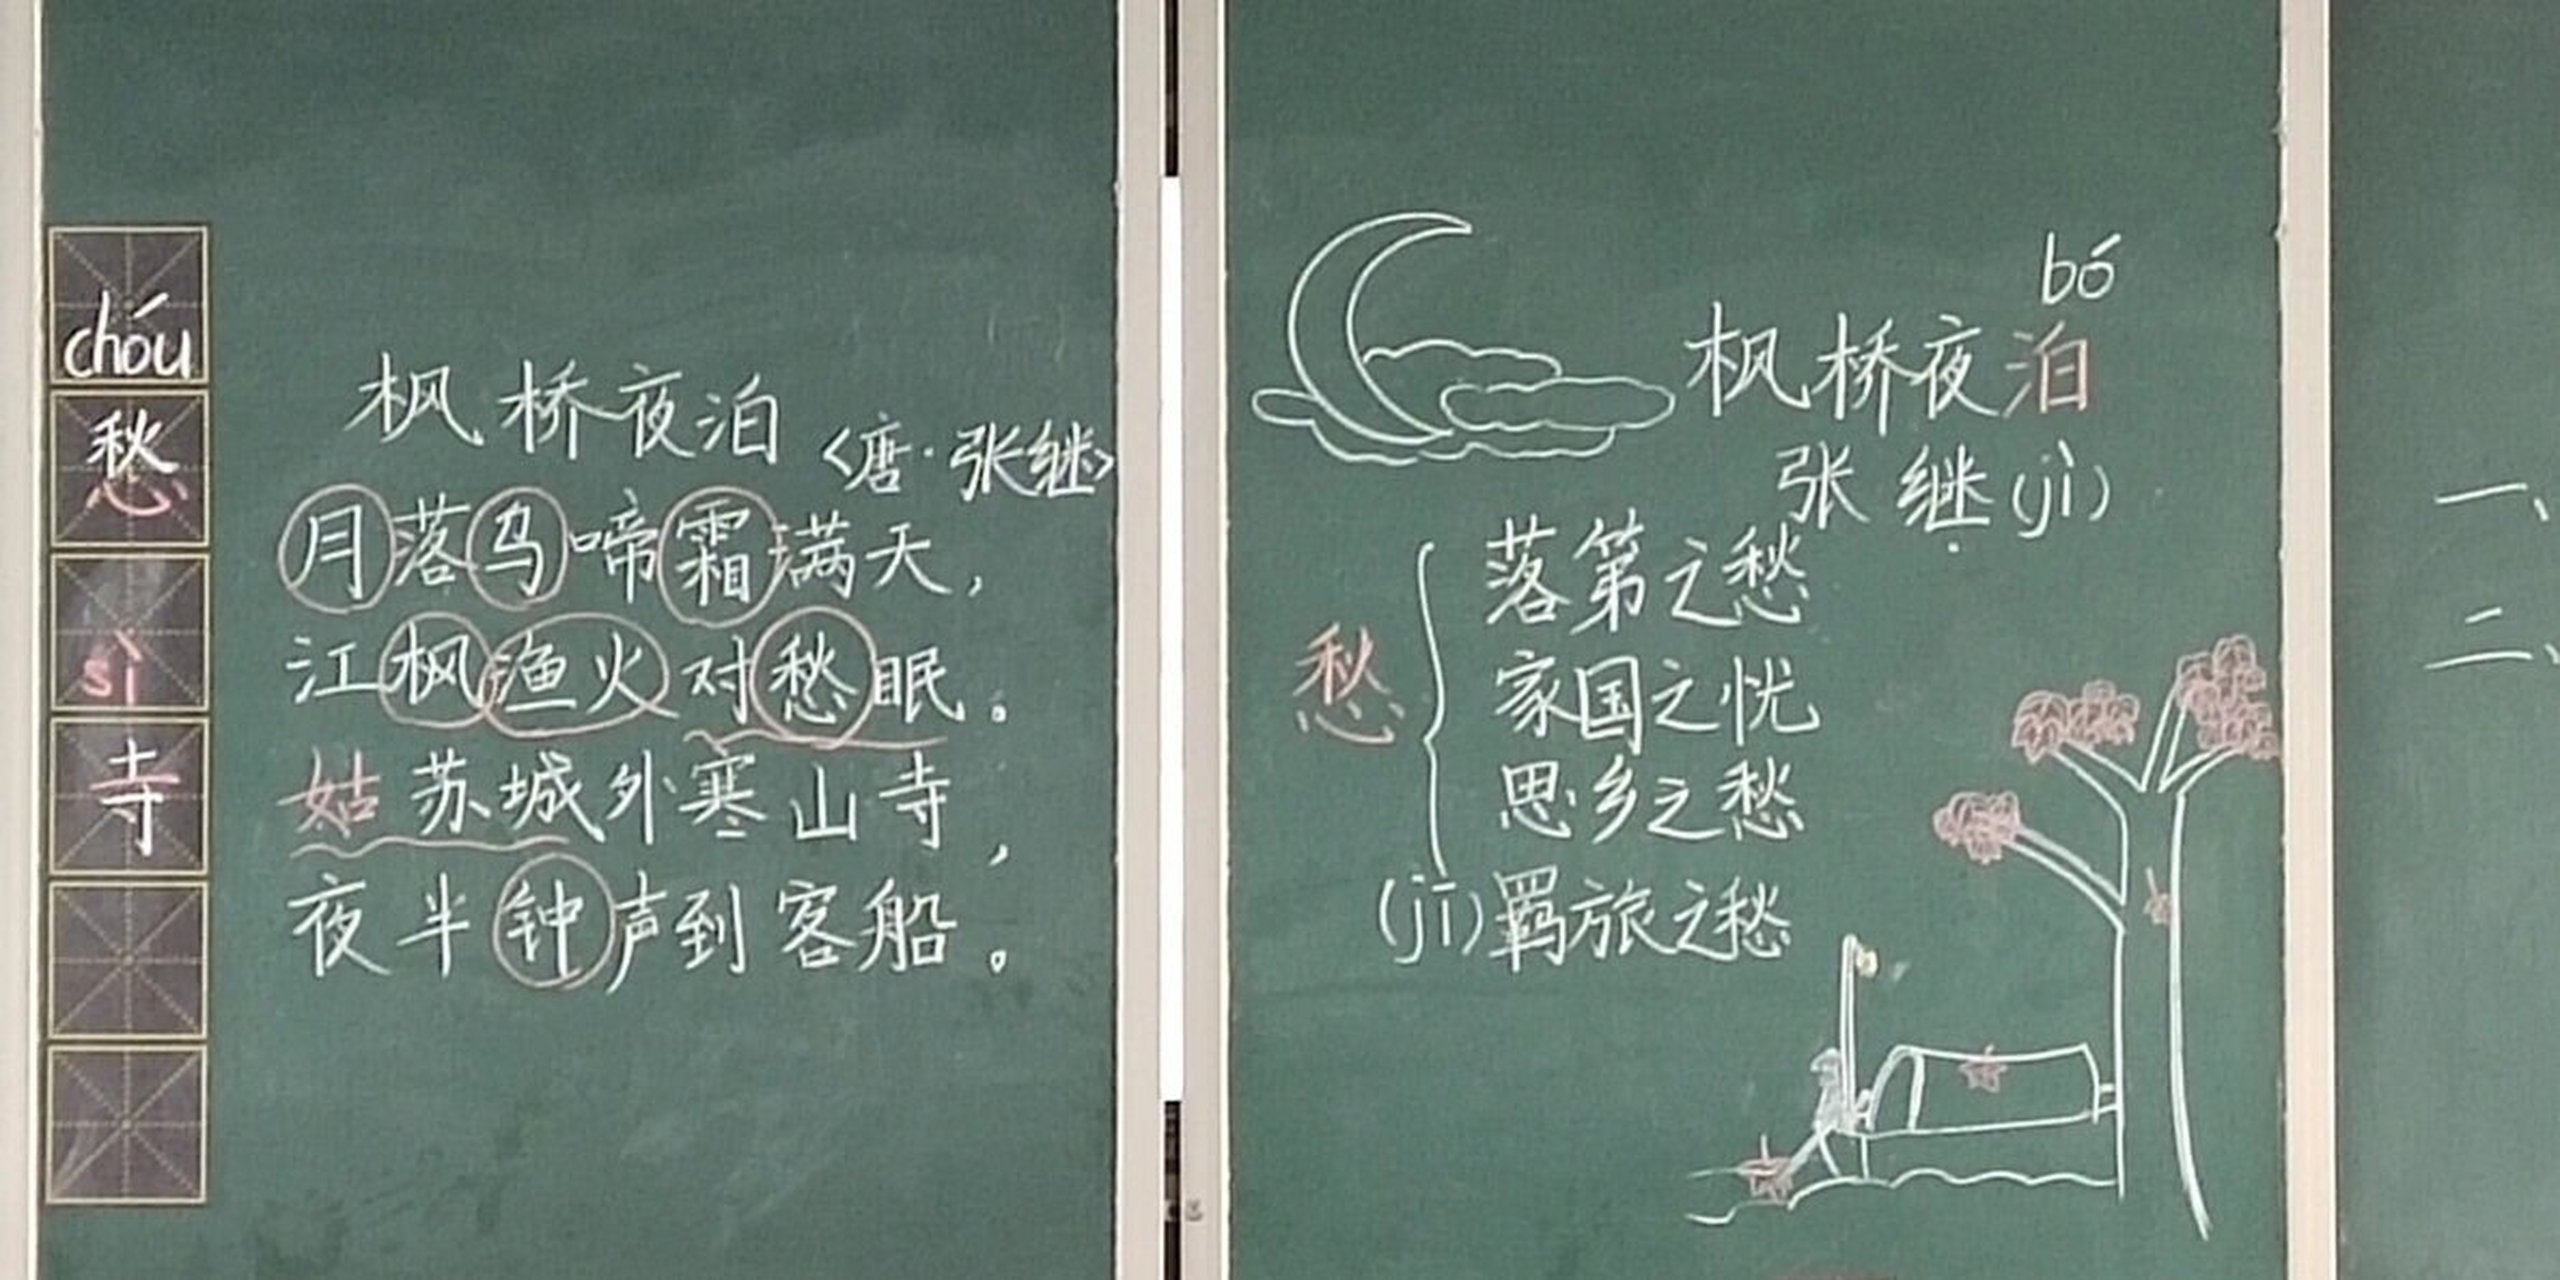 chóu
愁
sì
寺
枫桥夜泊
<唐·张继>
月落乌啼霜满天，
江枫渔火对愁眠。
姑苏城外寒山寺，
夜半钟声到客船。
bó
枫桥夜泊
张继(jì)
愁
落第之愁
家国之忧
思乡之愁
(jī)羁旅之愁
一、
二、